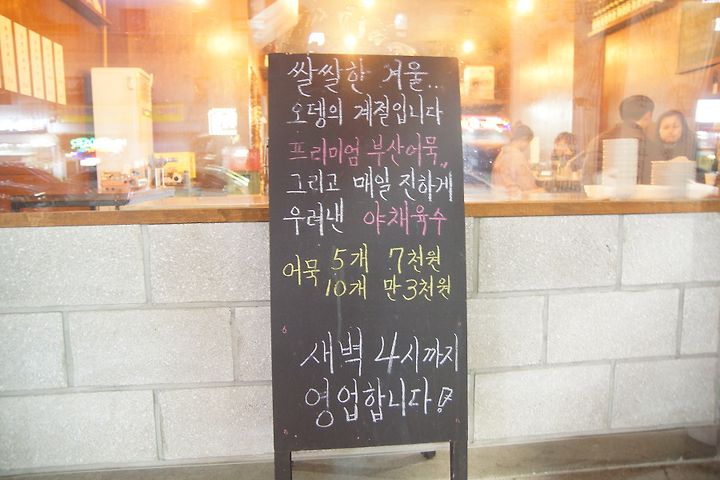 쌀쌀한 겨울..
오뎅의 계절입니다
프리미엄 부산어묵,,
그리고 매일 진하게
우려낸 야채육수
어묵 5개 7천원
10개 만3천원
새벽 4시까지
영업합니다!